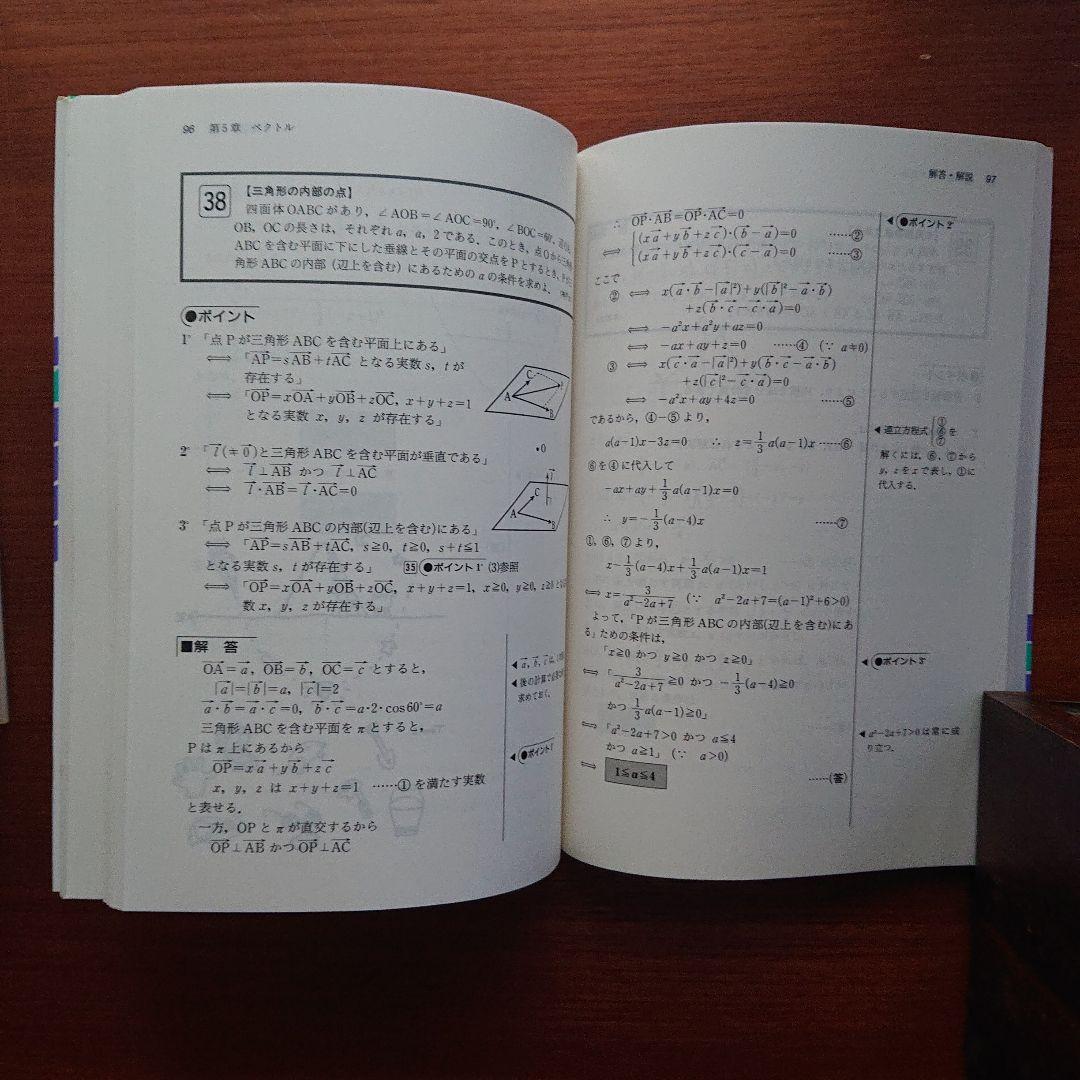 96 第5章 ベクトル
38 【三角形の内部の点】
四面体OABCがあり，∠AOB＝∠AOC＝90°，∠BOC＝60°，
OB，OCの長さは，それぞれ a，a，2である．このとき，点Oから三角形
ABCを含む平面に下にした垂線とその平面の交点をPとするとき，Pが三
角形ABCの内部（辺上を含む）にあるための a の条件を求めよ．
●ポイント
1° 「点Pが三角形ABCを含む平面上にある」
⟺ 「AP→＝sAB→＋tAC→ となる実数 s，t が
存在する」
⟺ 「OP→＝xOA→＋yOB→＋zOC→，x＋y＋z＝1
となる実数 x，y，z が存在する」
A B C P
•0
2° 「l→(≠0→)と三角形ABCを含む平面が垂直である」
⟺ l→⊥AB→ かつ l→⊥AC→
⟺ l→・AB→＝l→・AC→＝0
A B C l→
3° 「点Pが三角形ABCの内部(辺上を含む)にある」
⟺ 「AP→＝sAB→＋tAC→，s≧0，t≧0，s＋t≦1
となる実数 s，t が存在する」 35 ●ポイント1° (3)参照
⟺ 「OP→＝xOA→＋yOB→＋zOC→，x＋y＋z＝1，x≧0，y≧0，z≧0 とな
数 x，y，z が存在する」
■解 答
OA→＝a→，OB→＝b→，OC→＝c→ とすると，
|a→|＝|b→|＝a，|c→|＝2
a→・b→＝a→・c→＝0，b→・c→＝a・2・cos60°＝a
三角形ABCを含む平面を π とすると，
Pは π 上にあるから
OP→＝xa→＋yb→＋zc→
x，y，z は x＋y＋z＝1 ……① を満たす実数
と表せる．
一方，OPと π が直交するから
OP→⊥AB→ かつ OP→⊥AC→
◀ a→，b→，c→ は，
◀ 後の計算で必要
求めておく．
◀ ●ポイント1°
解答・解説 97
∴ OP→・AB→＝OP→・AC→＝0
⟺ {(xa→＋yb→＋zc→)・(b→－a→)＝0 ……②
(xa→＋yb→＋zc→)・(c→－a→)＝0 ……③
ここで
② ⟺ x(a→・b→－|a→|²)＋y(|b→|²－a→・b→)
＋z(b→・c→－c→・a→)＝0
⟺ －a²x＋a²y＋az＝0
⟺ －ax＋ay＋z＝0 ……④ (∵ a≠0)
③ ⟺ x(c→・a→－|a→|²)＋y(b→・c→－a→・b→)
＋z(|c→|²－c→・a→)＝0
⟺ －a²x＋ay＋4z＝0 ……⑤
であるから，④－⑤より，
a(a－1)x－3z＝0 ∴ z＝1/3 a(a－1)x ……⑥
⑥を④に代入して
－ax＋ay＋1/3 a(a－1)x＝0
∴ y＝－1/3(a－4)x ……⑦
①，⑥，⑦より，
x－1/3(a－4)x＋1/3 a(a－1)x＝1
⟺ x＝3/(a²－2a＋7) (∵ a²－2a＋7＝(a－1)²＋6＞0)
よって，「Pが三角形ABCの内部(辺上を含む)にあ
る」ための条件は，
「x≧0 かつ y≧0 かつ z≧0」
⟺ 「3/(a²－2a＋7)≧0 かつ －1/3(a－4)≧0
かつ 1/3 a(a－1)≧0」
⟺ 「a²－2a＋7＞0 かつ a≦4
かつ a≧1」 (∵ a＞0)
⟺ 1≦a≦4 ……(答)
◀ ●ポイント2°
◀ 連立方程式{① ⑥ ⑦ を
解くには，⑥，⑦から
y，z を x で表し，①に
代入する．
◀ ●ポイント3°
◀ a²－2a＋7＞0 は常に成
り立つ．